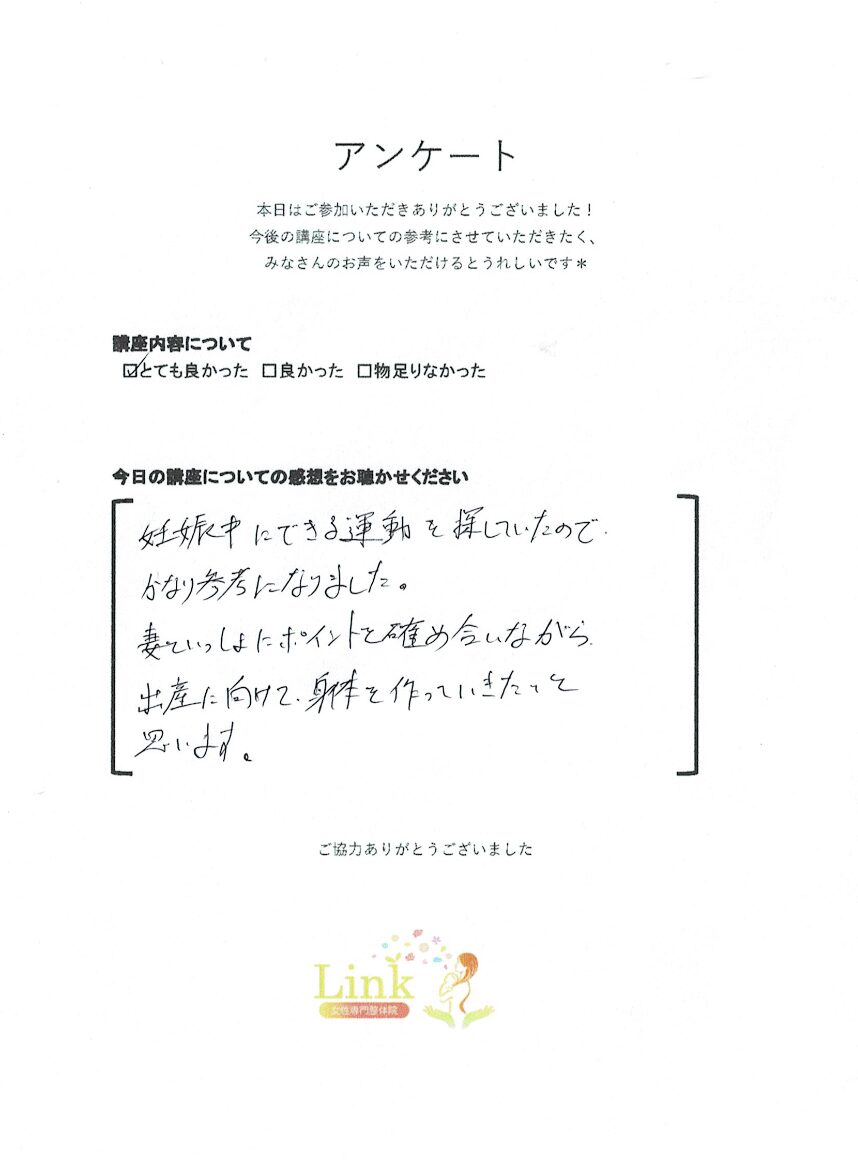 アンケート
本日はご参加いただきありがとうございました！
今後の講座についての参考にさせていただきたく、
みなさんのお声をいただけるとうれしいです＊
講座内容について
☑とても良かった □良かった □物足りなかった
今日の講座についての感想をお聴かせください
妊娠中にできる運動を探していたので、
かなり参考になりました。
妻といっしょにポイントを確め合いながら、
出産に向けて、身体を作っていきたいと
思います。
ご協力ありがとうございました
Link
女性専門整体院